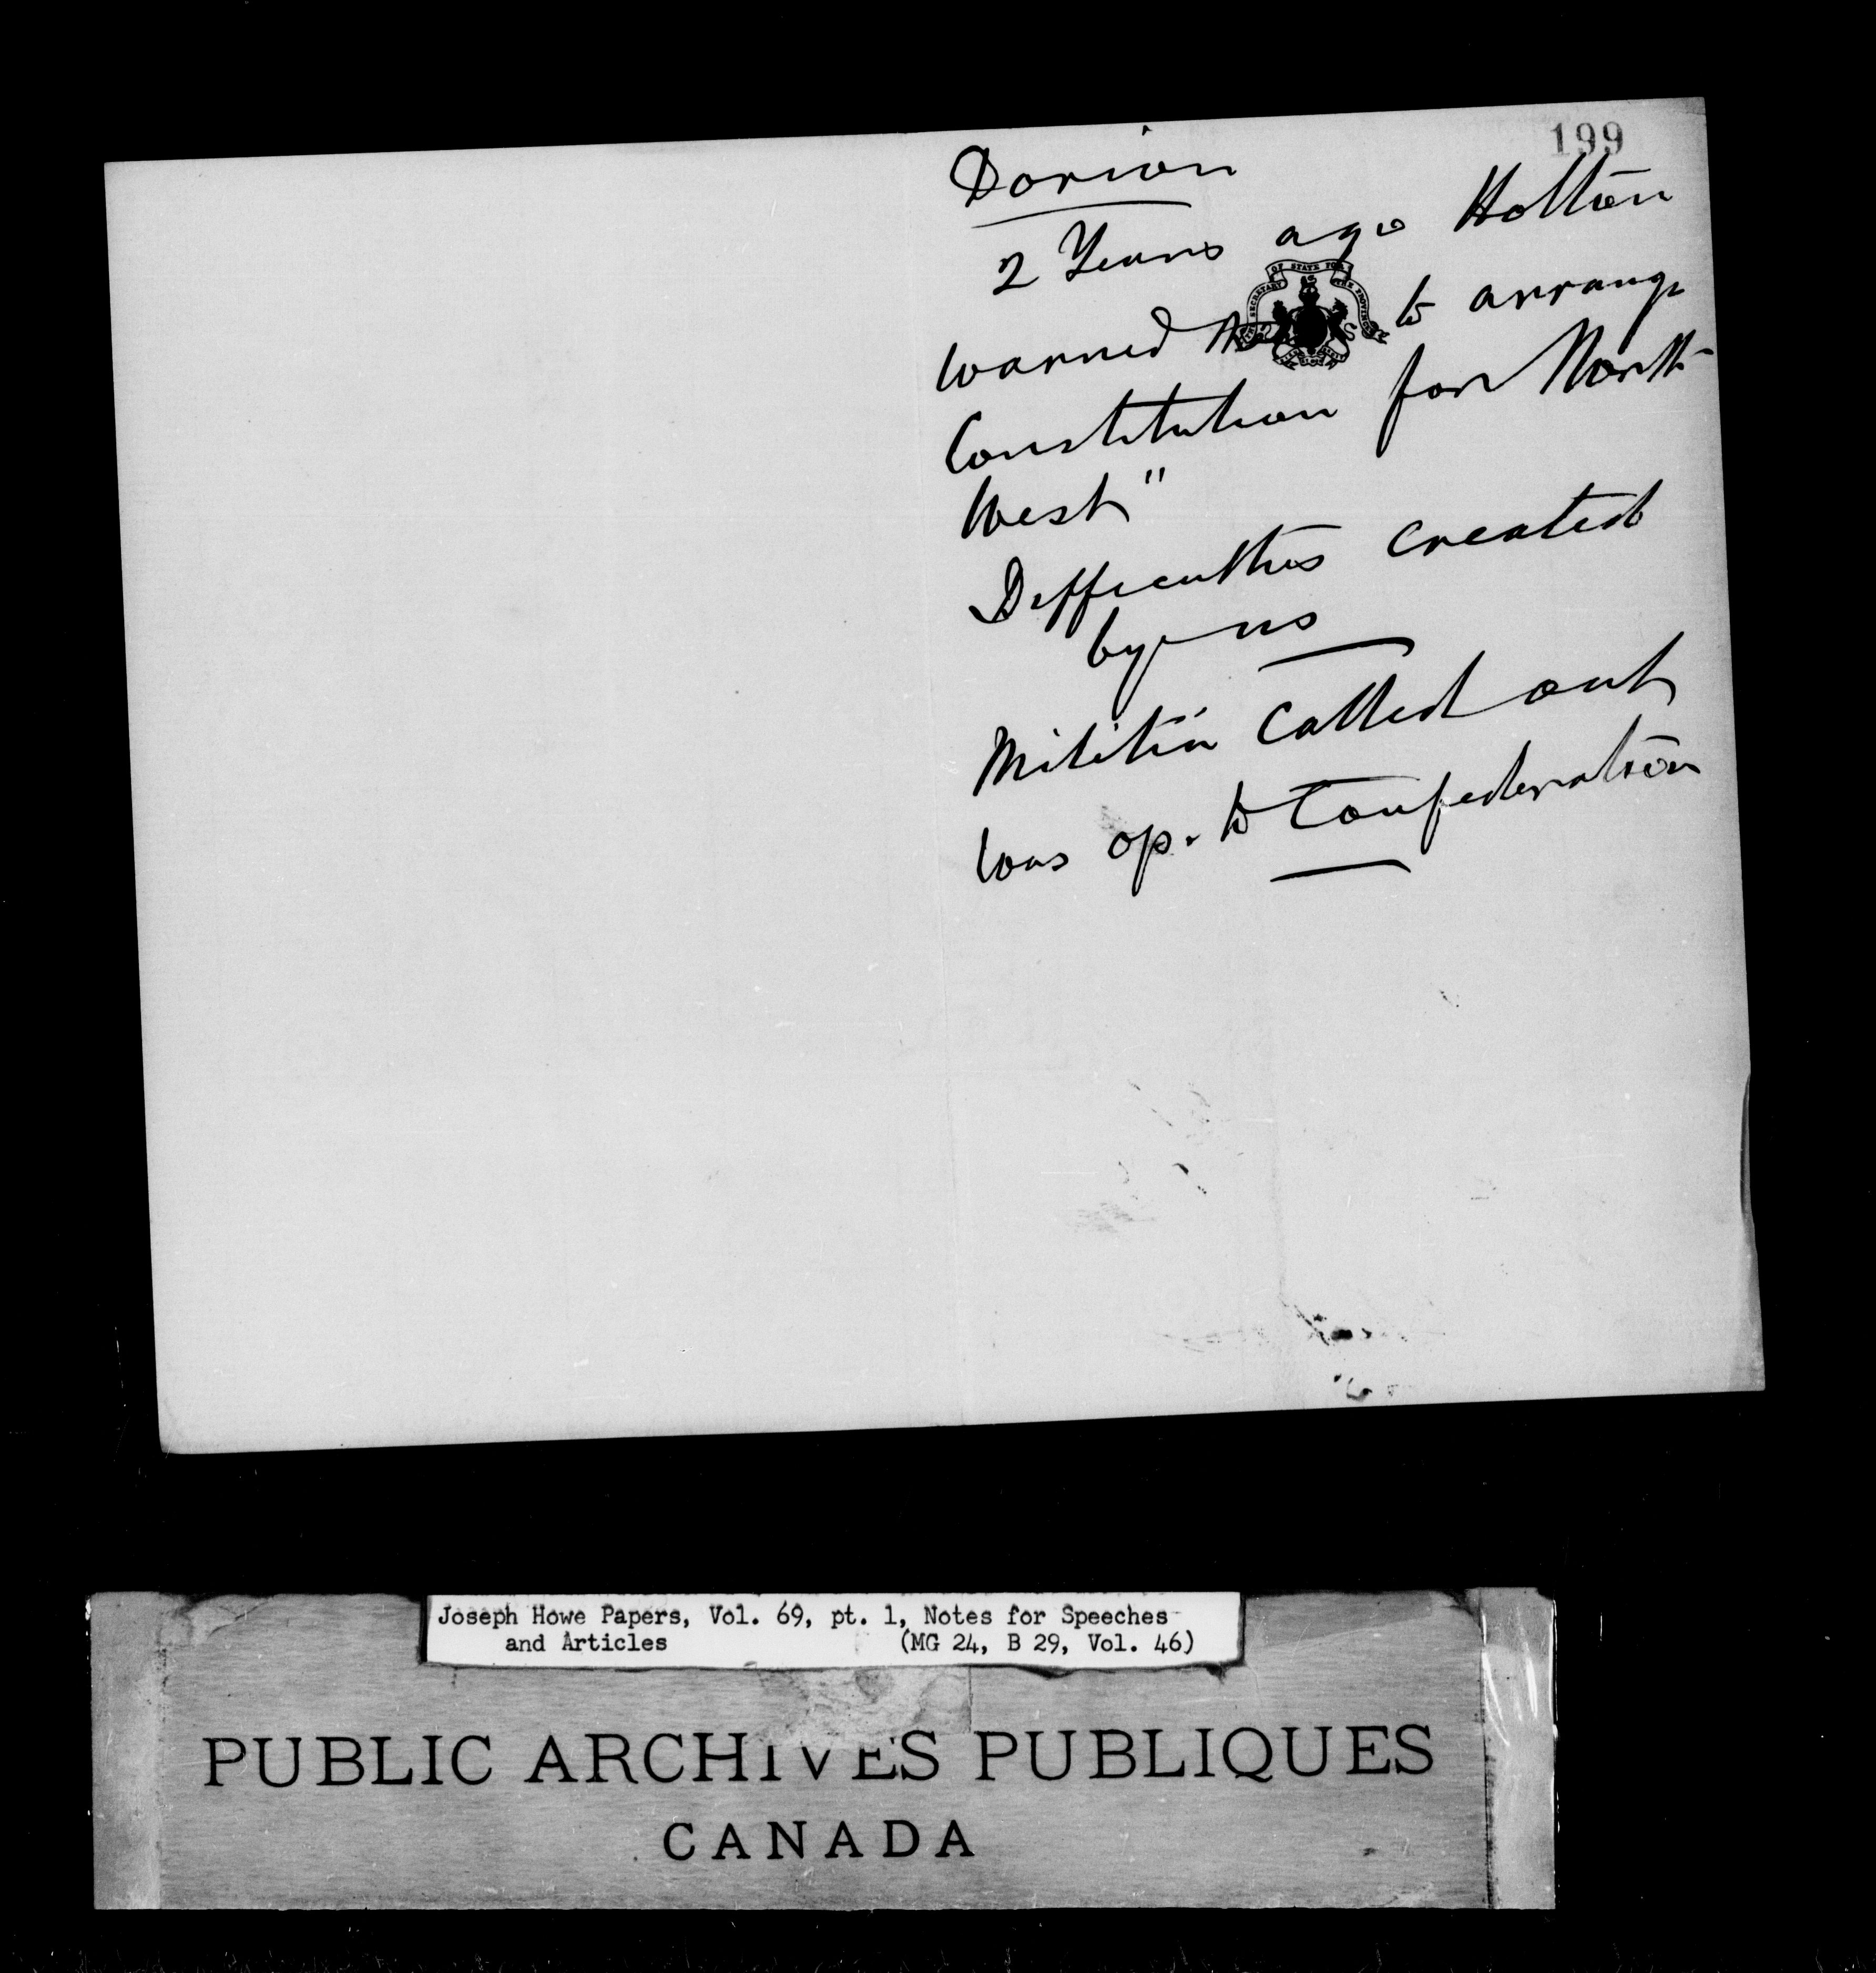 199
Dorian
2 Years ago Holton
warned to arrange
Constitution for North
West"
Difficulties created
by us
Militia Called out
was op. to Confederation
OF STATE FOR
THE SECRETARY THE PROVINCES
Joseph Howe Papers, Vol. 69, pt. 1, Notes for Speeches
and Articles (MG 24, B 29, Vol. 46)
PUBLIC ARCHIVES PUBLIQUES
CANADA